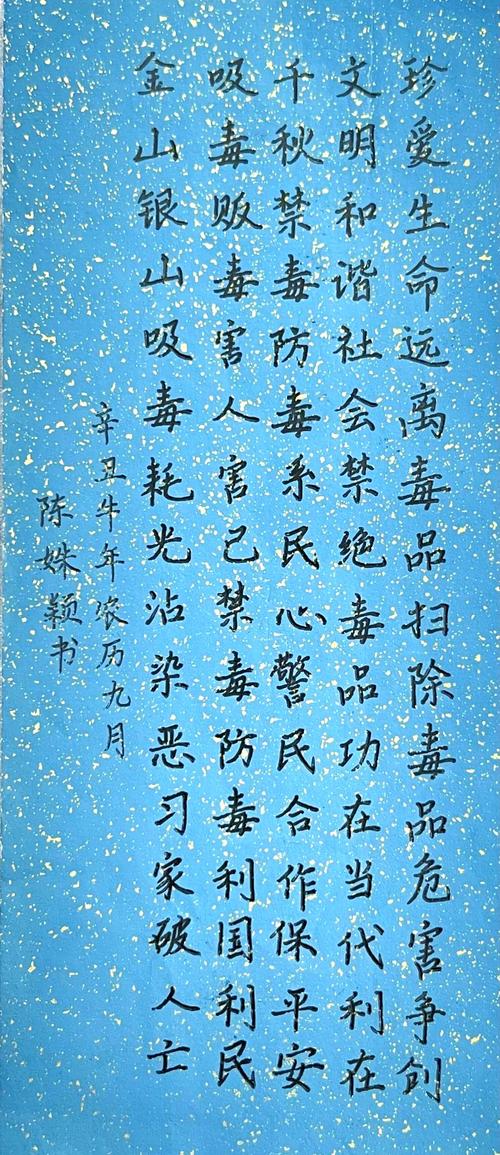 珍爱生命远离毒品扫除毒品危害争创
文明和谐社会禁绝毒品功在当代利在
千秋禁毒防毒系民心警民合作保平安
吸毒贩毒害人害己禁毒防毒利国利民
金山银山吸毒耗光沾染恶习家破人亡
辛丑牛年农历九月
陈姝颖书